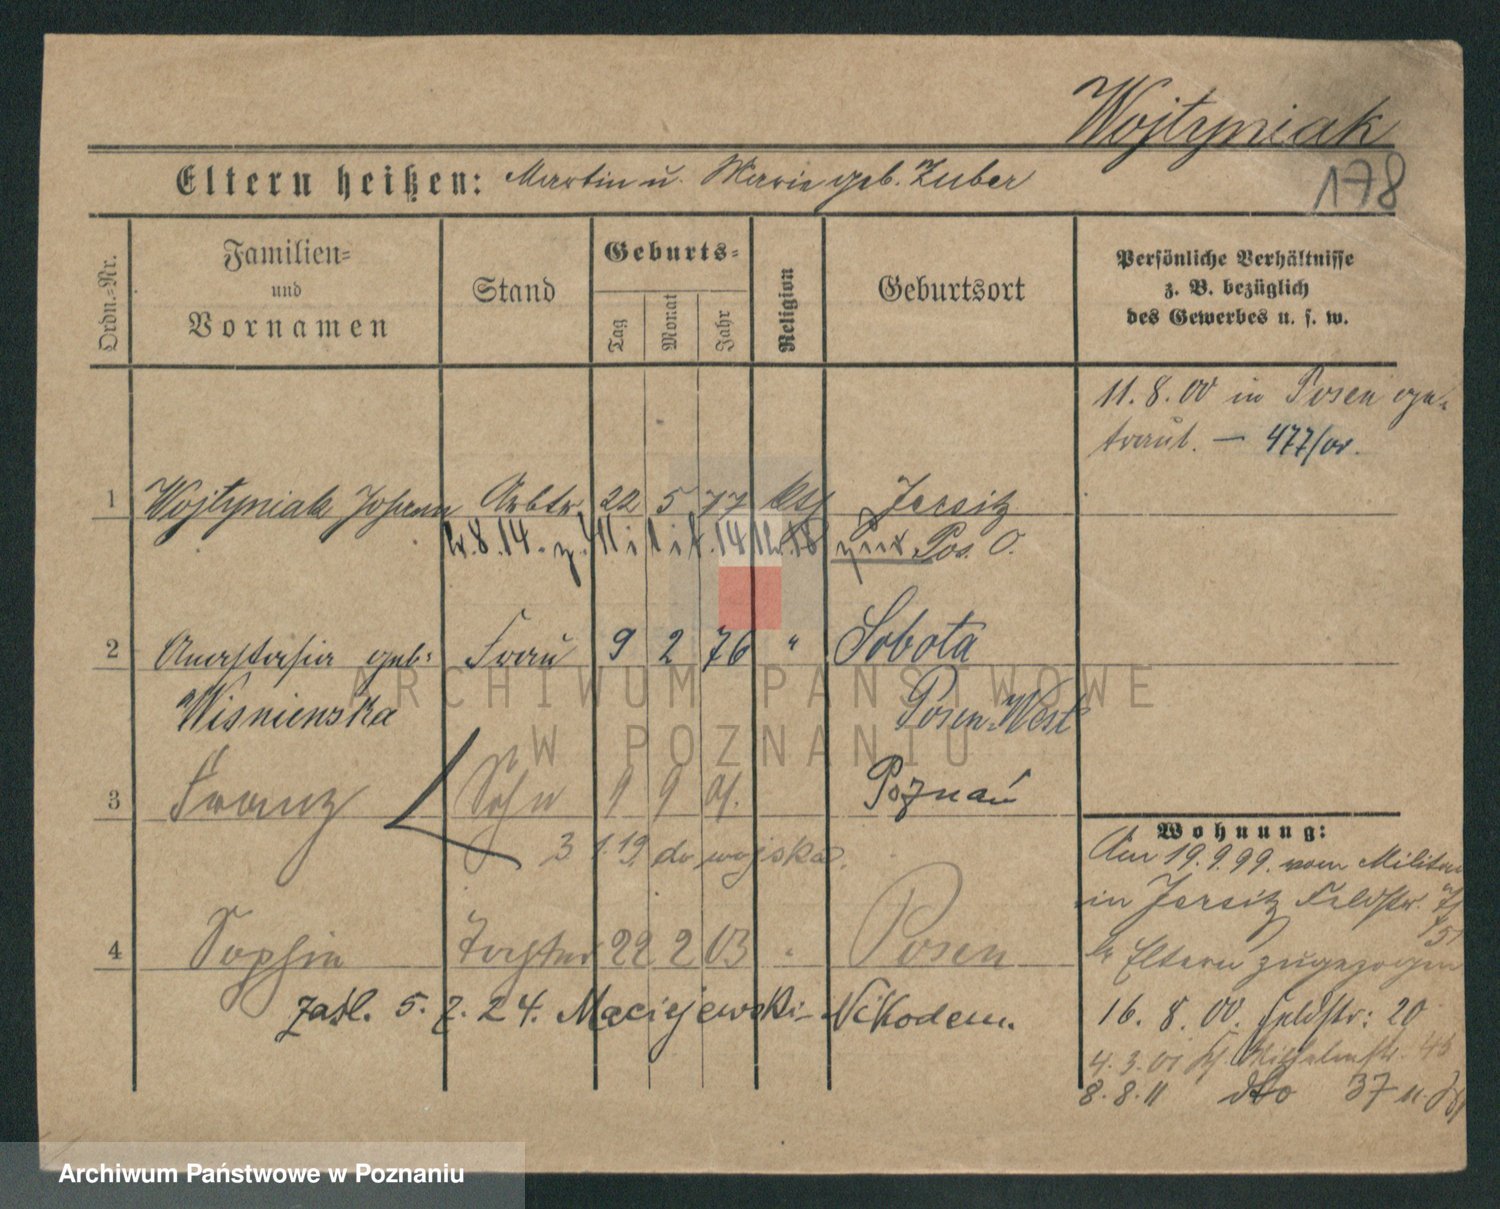 Wojtyniak
178
Eltern heißen: Martin u. Marie geb. Zuber
Ordn.-Nr.
Familien-
und
Vornamen
Stand
Geburts-
Tag
Monat
Jahr
Religion
Geburtsort
Persönliche Verhältnisse
z. B. bezüglich
des Gewerbes u. s. w.
11. 8. 00 in Posen ge-
traut. — 477/00.
1 Wojtyniak Johann Arbtr. 22 5 77 kth Jersitz
Pos. O.
2 Anastasia geb. Frau 9 2 76 " Sobota
Wisniewska Posen-West
3 Franz Sohn 9 9 01. Poznań
3 1. 19. do wojska.
4 Sophia Tochter 22 2 03 " Posen
zaśl. 5. 2. 24. Maciejewski-Nikodem.
Wohnung:
Am 19. 9. 99. vom Militär
in Jersitz Feldstr.
Eltern zugezogen
16. 8. 00. Feldstr: 20
4. 3. 01
8. 8. 11 dto 37
ARCHIWUM PAŃSTWOWE
W POZNANIU
Archiwum Państwowe w Poznaniu